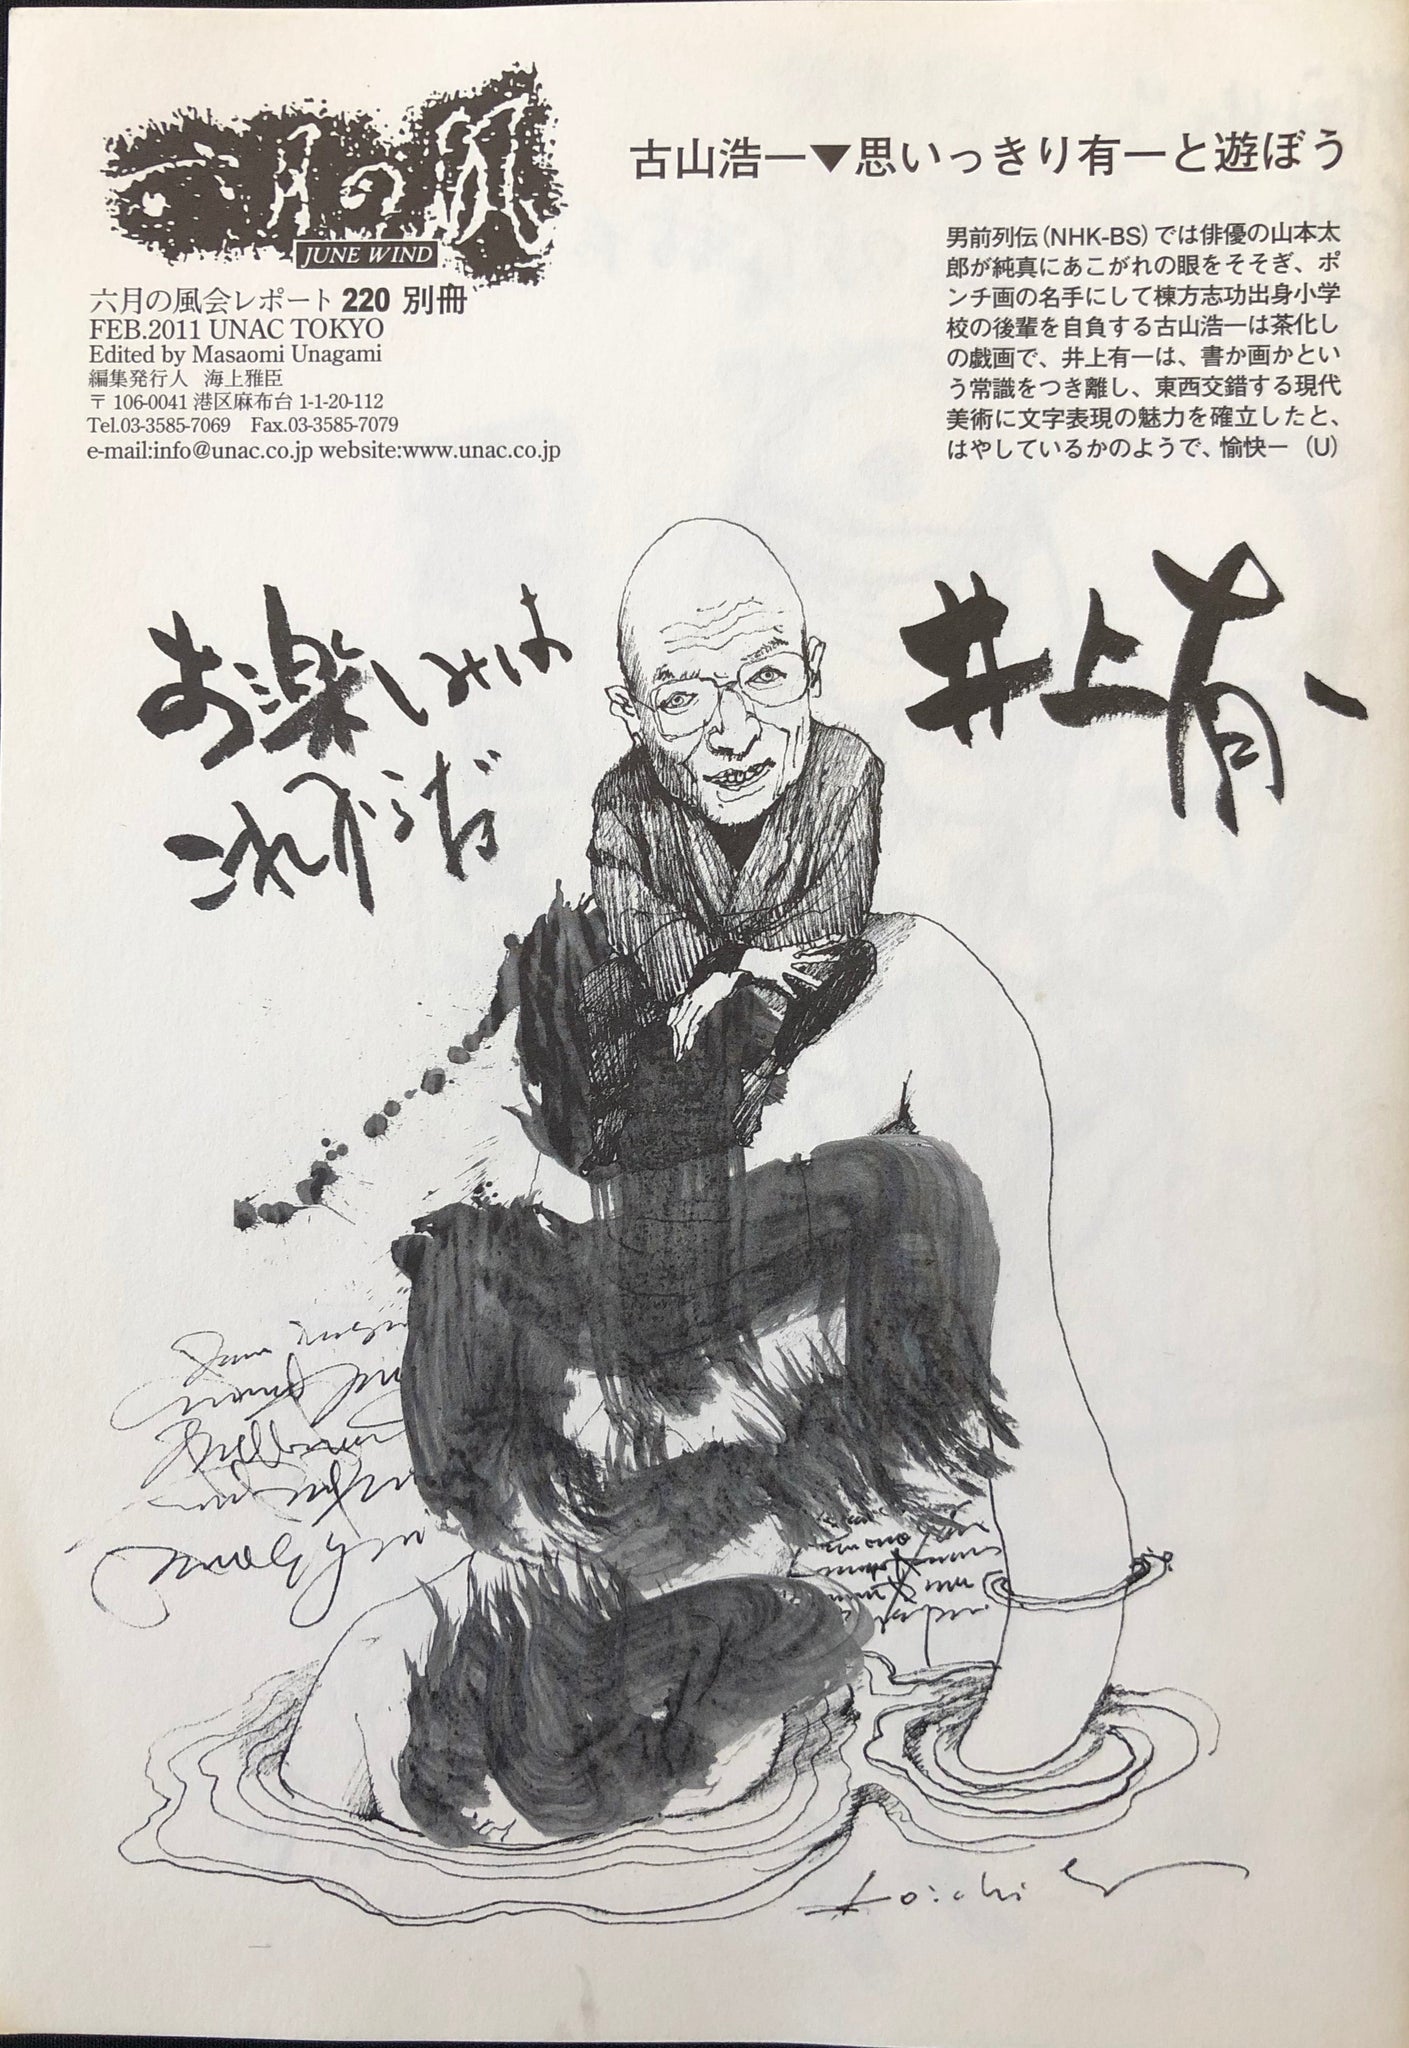 六月の風
JUNE WIND
六月の風会レポート 220 別冊
FEB.2011 UNAC TOKYO
Edited by Masaomi Unagami
編集発行人 海上雅臣
〒106-0041 港区麻布台 1-1-20-112
Tel.03-3585-7069 Fax.03-3585-7079
e-mail:info@unac.co.jp website:www.unac.co.jp
古山浩一▼思いっきり有一と遊ぼう
男前列伝(NHK-BS)では俳優の山本太
郎が純真にあこがれの眼をそそぎ、ポ
ンチ画の名手にして棟方志功出身小学
校の後輩を自負する古山浩一は茶化し
の戯画で、井上有一は、書か画かとい
う常識をつき離し、東西交錯する現代
美術に文字表現の魅力を確立したと、
はやしているかのようで、愉快一 (U)
井上有一
お楽しみは
これからだ
Koichi